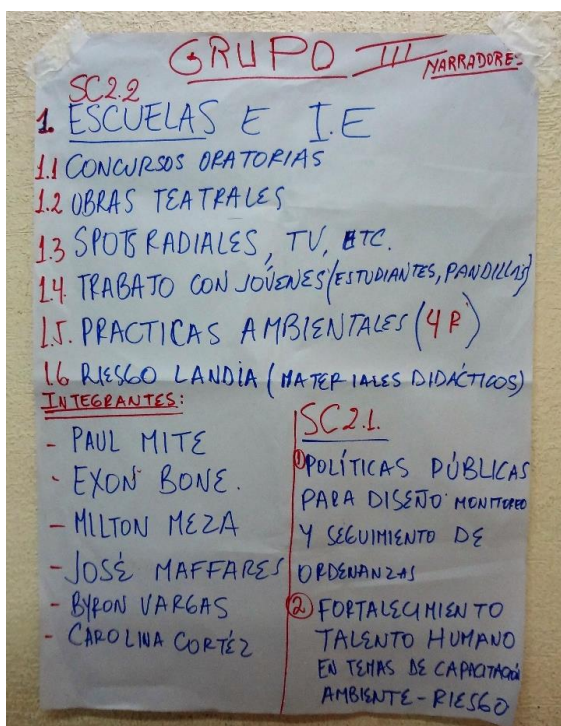 GRUPO III
NARRADORES
SC2.2
1. ESCUELAS E I.E
1.1 CONCURSOS ORATORIAS
1.2 OBRAS TEATRALES
1.3 SPOTS RADIALES, TV, ETC.
1.4. TRABAJO CON JÓVENES (ESTUDIANTES, PANDILLAS)
1.5. PRACTICAS AMBIENTALES (4 R)
1.6 RIESGO LANDÍA (MATERIALES DIDÁCTICOS)
INTEGRANTES:
- PAUL MITE
- EXON BONE.
- MILTON MEZA
- JOSÉ MAFFARES
- BYRON VARGAS
- CAROLINA CORTÉZ
SC2.1.
① POLÍTICAS PÚBLICAS
PARA DISEÑO MONITOREO
Y SEGUIMIENTO DE
ORDENANZAS
② FORTALECIMIENTO
TALENTO HUMANO
EN TEMAS DE CAPACITACIÓN
AMBIENTE - RIESGO